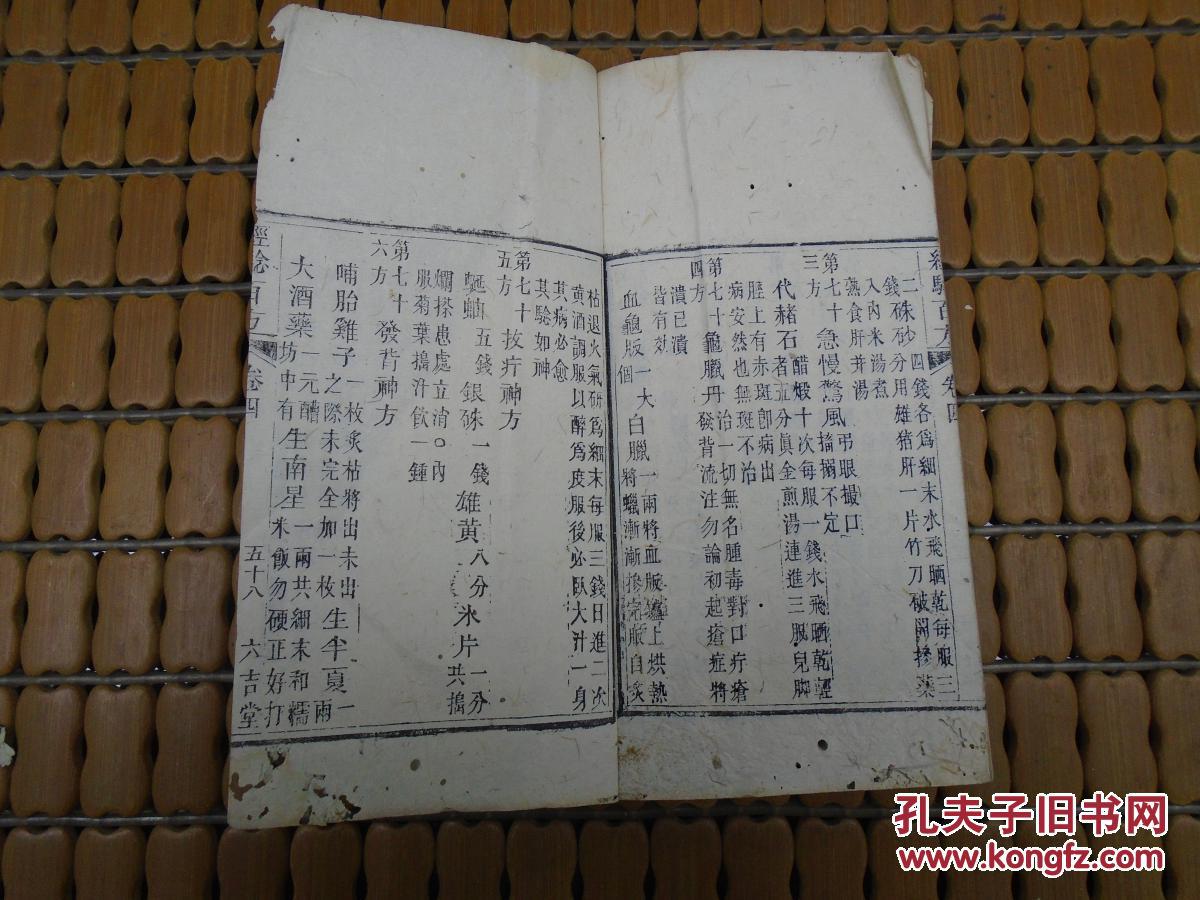 經驗百方 卷四
二硃砂四錢各爲細末水飛晒乾每服三
錢分用雄猪肝一片竹刀破開摻藥
入內米湯煮
蒸食肝并湯
第七十三方 急慢驚風 弔眼撮口搐搦不定
代赭石 醋煅十次每服一錢水飛晒乾輕
者五分眞金煎湯連進三服兒脚
脛上有赤斑卽病出
病安然也無斑不治
第七十四方 龜臘丹 治一切無名腫毒對口疔瘡
發背流注勿論初起瘡症將
潰已潰
皆有效
血龜版一大個 白臘一兩將血版爐上烘熱
將蠟漸漸摻完版自
枯退火氣研爲細末每服三錢日進二次
黃酒調服以醉爲度服後必臥大汁一身
其病必愈
其驗如神
第七十五方 抜疔神方
蜒蚰五錢 銀硃一錢 雄黃八分 氷片一分 共搗
爛搽患處立消○內
服菊葉搗汁飲一鍾
第七十六方 發背神方
哺胎雞子 一枚炙枯將出未出
之際未完全加一枚 生半夏一兩
大酒藥 一元醩
坊中有 生南星 一兩共細末和糯
米飯勿硬正好打
經驗百方 卷四 五十八 六吉堂
孔夫子旧书网
www.kongfz.com